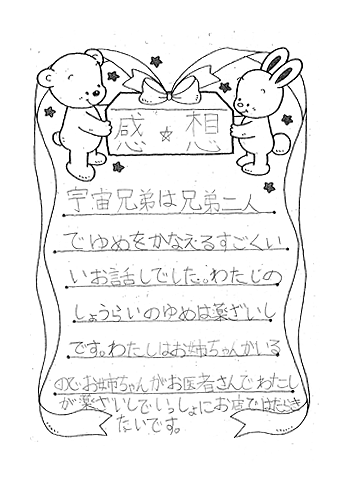 感☆想
宇宙兄弟は兄弟二人
でゆめをかなえるすごくい
いお話しでした。わたしの
しょうらいのゆめは薬ざいし
です。わたしはお姉ちゃんがいる
のでお姉ちゃんがお医者さんでわたし
が薬ざいしでいっしょにお店ではたらき
たいです。